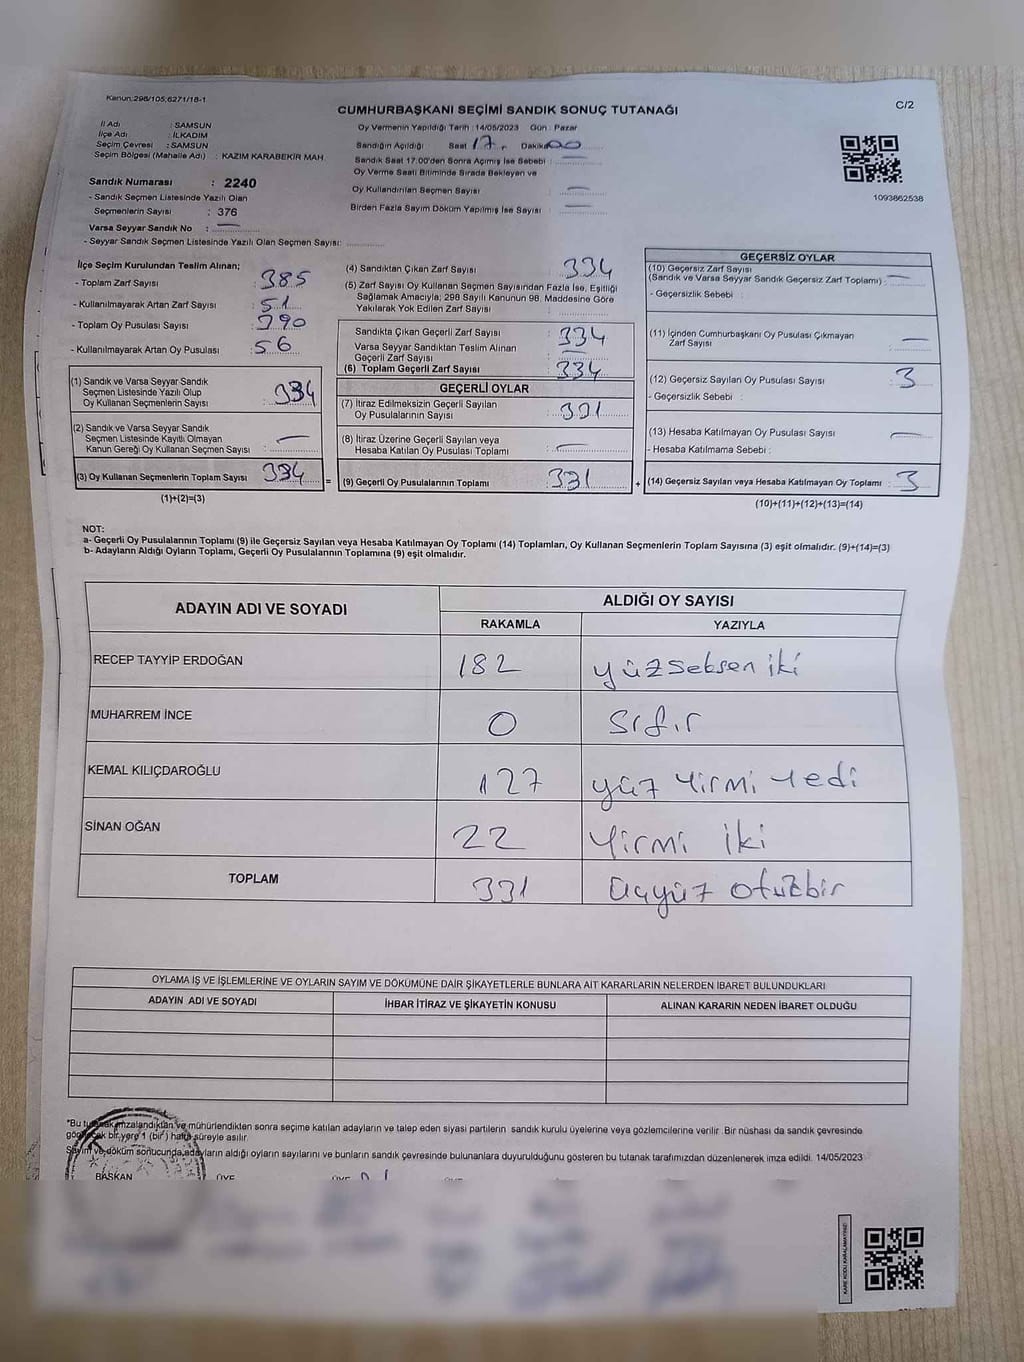 Kanun:298/105;6271/18-1
CUMHURBAŞKANI SEÇİMİ SANDIK SONUÇ TUTANAĞI
C/2
İl Adı : SAMSUN
İlçe Adı : İLKADIM
Seçim Çevresi : SAMSUN
Seçim Bölgesi (Mahalle Adı) : KAZIM KARABEKİR MAH.
Sandık Numarası : 2240
- Sandık Seçmen Listesinde Yazılı Olan
Seçmenlerin Sayısı : 376
Varsa Seyyar Sandık No : —
- Seyyar Sandık Seçmen Listesinde Yazılı Olan Seçmen Sayısı:
Oy Vermenin Yapıldığı Tarih : 14/05/2023 Gün : Pazar
Sandığın Açıldığı Saat 17 Dakika 00
Sandık Saat 17:00'den Sonra Açımış İse Sebebi : —
Oy Verme Saati Bitiminde Sırada Bekleyen ve
Oy Kullandırılan Seçmen Sayısı : —
Birden Fazla Sayım Döküm Yapılmış İse Sayısı : —
1093862538
İlçe Seçim Kurulundan Teslim Alınan;
- Toplam Zarf Sayısı : 385
- Kullanılmayarak Artan Zarf Sayısı : 51
- Toplam Oy Pusulası Sayısı : 390
- Kullanılmayarak Artan Oy Pusulası : 56
(1) Sandık ve Varsa Seyyar Sandık
Seçmen Listesinde Yazılı Olup
Oy Kullanan Seçmenlerin Sayısı : 334
(2) Sandık ve Varsa Seyyar Sandık
Seçmen Listesinde Kayıtlı Olmayan
Kanun Gereği Oy Kullanan Seçmen Sayısı : —
(3) Oy Kullanan Seçmenlerin Toplam Sayısı : 334
(1)+(2)=(3)
(4) Sandıktan Çıkan Zarf Sayısı : 334
(5) Zarf Sayısı Oy Kullanan Seçmen Sayısından Fazla İse, Eşitliği
Sağlamak Amacıyla; 298 Sayılı Kanunun 98. Maddesine Göre
Yakılarak Yok Edilen Zarf Sayısı :
Sandıkta Çıkan Geçerli Zarf Sayısı : 334
Varsa Seyyar Sandıktan Teslim Alınan
Geçerli Zarf Sayısı : —
(6) Toplam Geçerli Zarf Sayısı : 334
GEÇERLİ OYLAR
(7) İtiraz Edilmeksizin Geçerli Sayılan
Oy Pusulalarının Sayısı : 331
(8) İtiraz Üzerine Geçerli Sayılan veya
Hesaba Katılan Oy Pusulası Toplamı : —
= (9) Geçerli Oy Pusulalarının Toplamı : 331
GEÇERSİZ OYLAR
(10) Geçersiz Zarf Sayısı
(Sandık ve Varsa Seyyar Sandık Geçersiz Zarf Toplamı) : —
- Geçersizlik Sebebi :
(11) İçinden Cumhurbaşkanı Oy Pusulası Çıkmayan
Zarf Sayısı : —
(12) Geçersiz Sayılan Oy Pusulası Sayısı : 3
- Geçersizlik Sebebi :
(13) Hesaba Katılmayan Oy Pusulası Sayısı : —
- Hesaba Katılmama Sebebi :
+ (14) Geçersiz Sayılan veya Hesaba Katılmayan Oy Toplamı : 3
(10)+(11)+(12)+(13)=(14)
NOT:
a- Geçerli Oy Pusulalarının Toplamı (9) ile Geçersiz Sayılan veya Hesaba Katılmayan Oy Toplamı (14) Toplamları, Oy Kullanan Seçmenlerin Toplam Sayısına (3) eşit olmalıdır. (9)+(14)=(3)
b- Adayların Aldığı Oyların Toplamı, Geçerli Oy Pusulalarının Toplamına (9) eşit olmalıdır.
ADAYIN ADI VE SOYADI
ALDIĞI OY SAYISI
RAKAMLA YAZIYLA
RECEP TAYYİP ERDOĞAN 182 yüzseksen iki
MUHARREM İNCE 0 sıfır
KEMAL KILIÇDAROĞLU 127 yüz yirmi yedi
SİNAN OĞAN 22 yirmi iki
TOPLAM 331 üçyüz otuzbir
OYLAMA İŞ VE İŞLEMLERİNE VE OYLARIN SAYIM VE DÖKÜMÜNE DAİR ŞİKAYETLERLE BUNLARA AİT KARARLARIN NELERDEN İBARET BULUNDUKLARI
ADAYIN ADI VE SOYADI İHBAR İTİRAZ VE ŞİKAYETİN KONUSU ALINAN KARARIN NEDEN İBARET OLDUĞU
*Bu tutanak imzalandıktan ve mühürlendikten sonra seçime katılan adayların ve talep eden siyasi partilerin sandık kurulu üyelerine veya gözlemcilerine verilir. Bir nüshası da sandık çevresinde
görülecek bir yere 1 (bir) hafta süreyle asılır.
Sayım ve döküm sonucunda,adayların aldığı oyların sayılarını ve bunların sandık çevresinde bulunanlara duyurulduğunu gösteren bu tutanak tarafımızdan düzenlenerek imza edildi. 14/05/2023
BAŞKAN ÜYE ÜYE